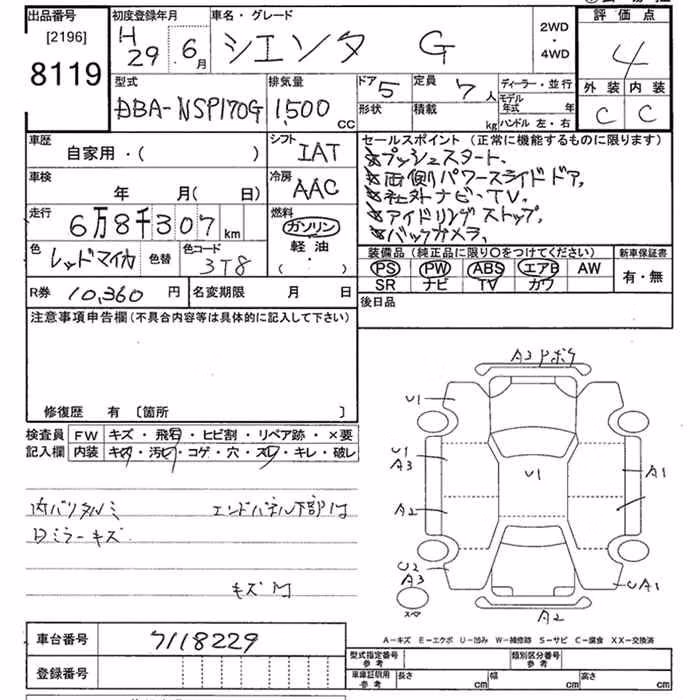 出品番号 初度登録年月 車名・グレード 2WD・4WD 評価点
[2196] 8119 H29 6月 シエンタ G 4
外装 内装
C C
型式 排気量 ドア 5 定員 7人 ディーラー・並行
DBA-NSP170G 1,500cc 形状 積載 kg モデル年式 年
ハンドル 左・右
車歴 自家用・( ) シフト IAT
セールスポイント(正常に機能するものに限ります)
★プッシュスタート、
★両側パワースライドドア、
★社外ナビ・TV、
★アイドリングストップ、
★バックカメラ、
車検 年 月( 日) 冷房 AAC
走行 6万8千307km 燃料 ガソリン
軽油・
( ・ )
色 レッドマイカ 色替 色コード 3T8
装備品(純正品に限り〇をつけてください) 新車保証書
PS PW ABS エアB AW 有・無
SR ナビ TV カワ
R券 10,360円 名変期限 月 日
後日品
注意事項申告欄(不具合内容等は具体的に記入して下さい)
修復歴 有 [箇所 ]
検査員 FW キズ・飛石・ヒビ割・リペア跡・×要
記入欄 内装 キズ・汚レ・コゲ・穴・スレ・キレ・破レ
内バリタルミ エンドパネル下部
Dミラーキズ
キズ
A3 Pポケ
U1
U1
A3
U1
A1
A2
U2
A3
UA1
スペア
A2
A-キズ E-エクボ U-凹み W-補修跡 S-サビ C-腐食 XX-交換済
車台番号 7118229
登録番号
型式指定番号 参考 類別区分番号 参考
車庫証明用 参考 長さ cm 幅 cm 高さ cm